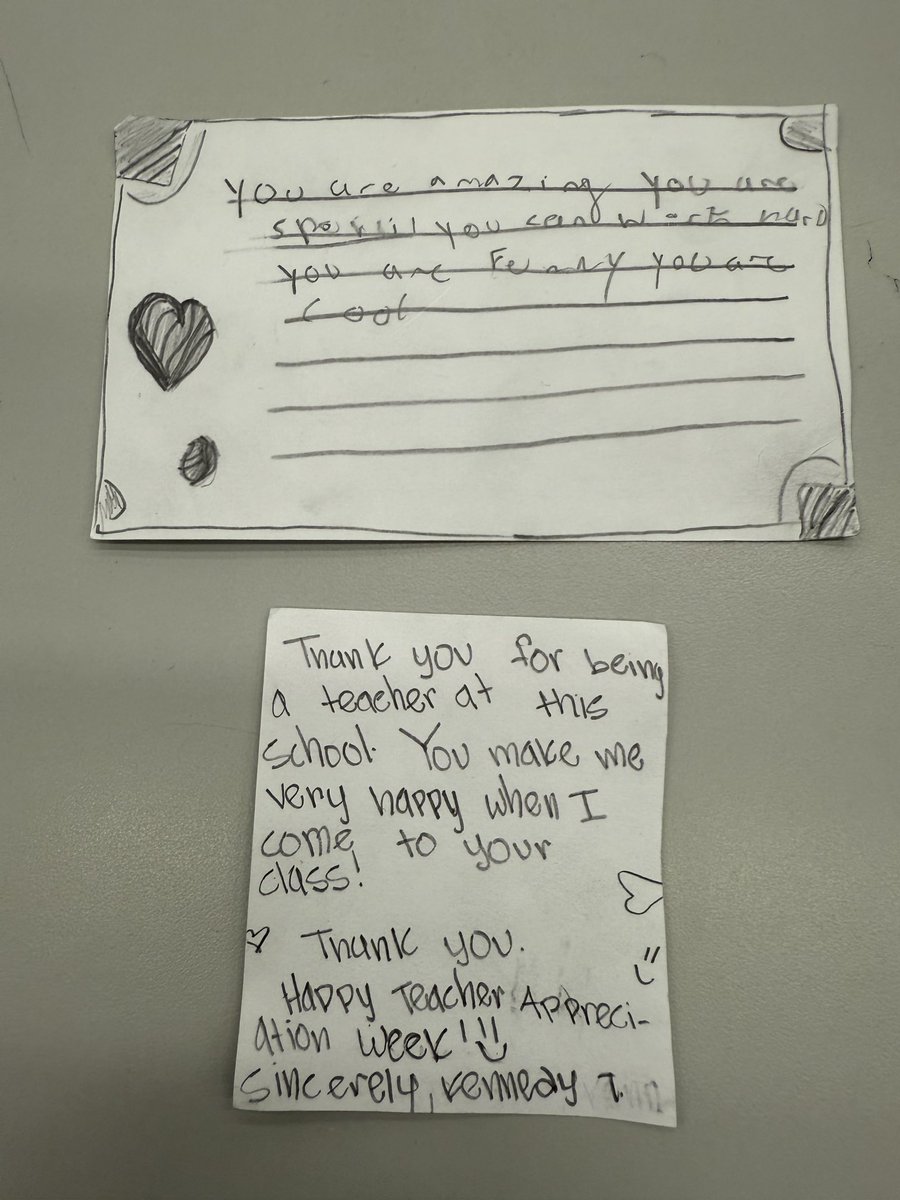 You are amazing you are
you can work hard
you are Funny you are
cool
Thank you for being
a teacher at this
school. You make me
very happy when I
come to your
class!
Thank you.
Happy Teacher Appreci-
ation week!!!
Sincerely, Kennedy T.